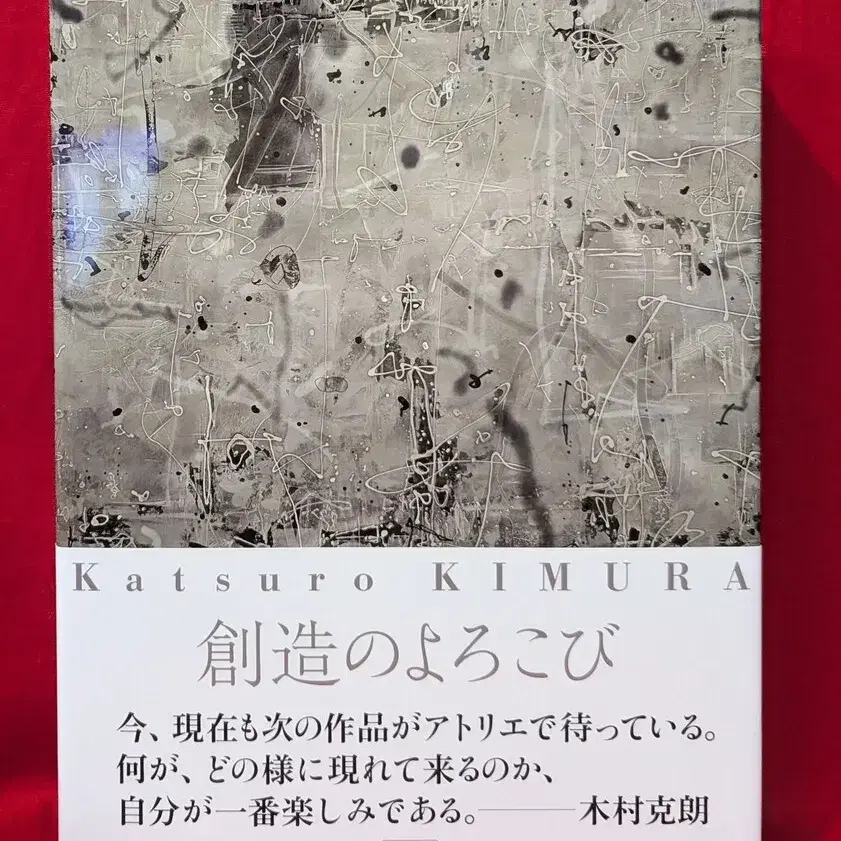 Katsuro KIMURA
創造のよろこび
今、現在も次の作品がアトリエで待っている。
何が、どの様に現れて来るのか、
自分が一番楽しみである。───木村克朗